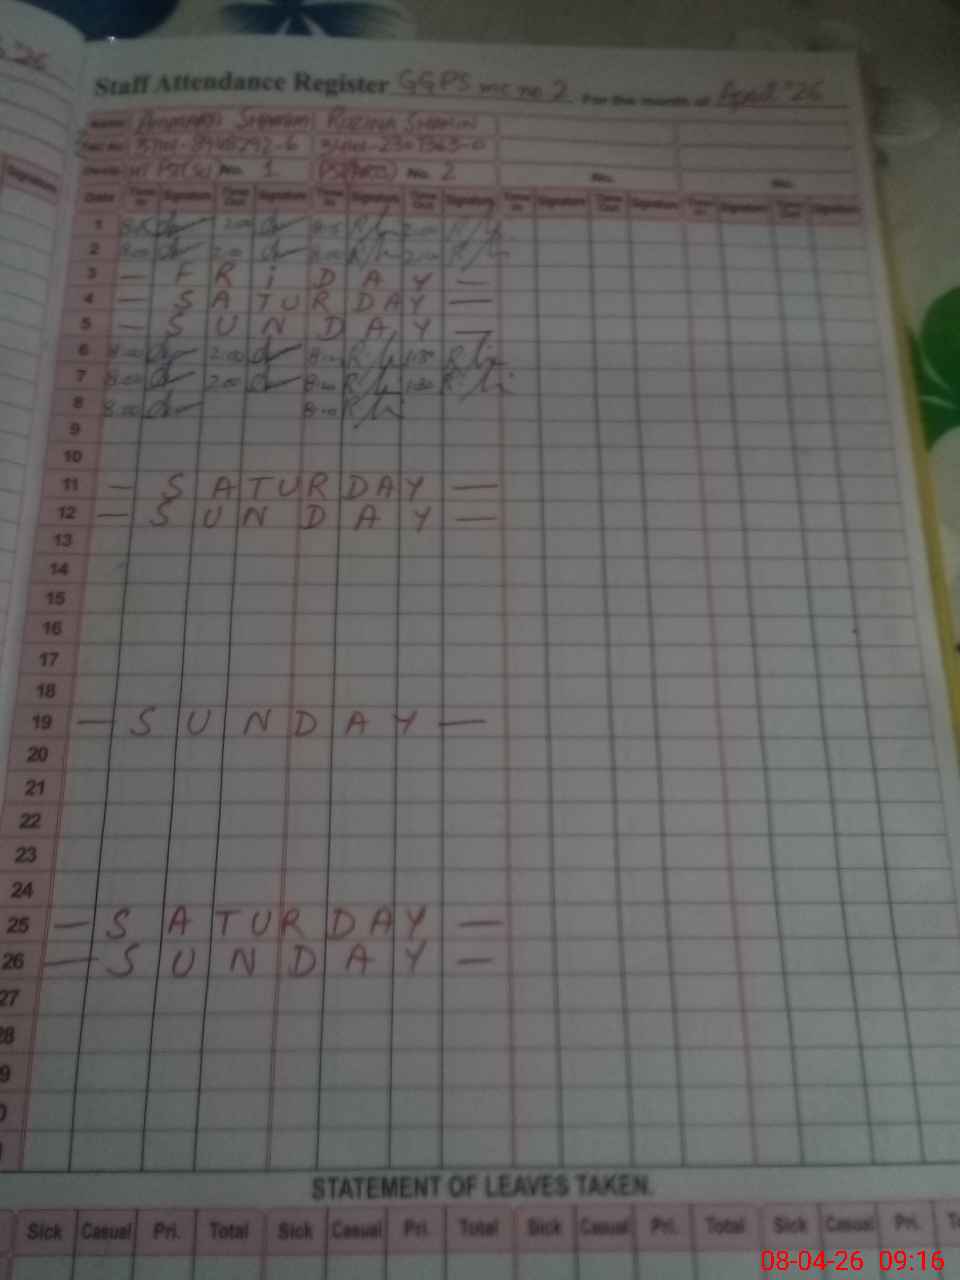 26
Staff Attendance Register GGPS mc no 2 For the month of April '26
Name SHAHEEN ROZINA SHAHEEN
No. 1 No. 2 No. No.
Date Time In Signature Time Out Signature Time In Signature Time Out Signature Time In Signature Time Out Signature Time In Signature Time Out Signature
1 2:00
2 8:00 2:00 8:00 2:00
3 — F R i D A Y —
4 — S A T U R D A Y —
5 — S U N D A Y —
6 8:00 2:00 8:00 1:30
7 8:00 2:00 8:00 1:30
8 8:00 8:00
9
10
11 — S A T U R D A Y —
12 — S U N D A Y —
13
14
15
16
17
18
19 — S U N D A Y —
20
21
22
23
24
25 — S A T U R D A Y —
26 — S U N D A Y —
27
28
9
STATEMENT OF LEAVES TAKEN.
Sick Casual Pri. Total Sick Casual Pri. Total Sick Casual Pri. Total Sick Casual Pri.
08-04-26 09:16